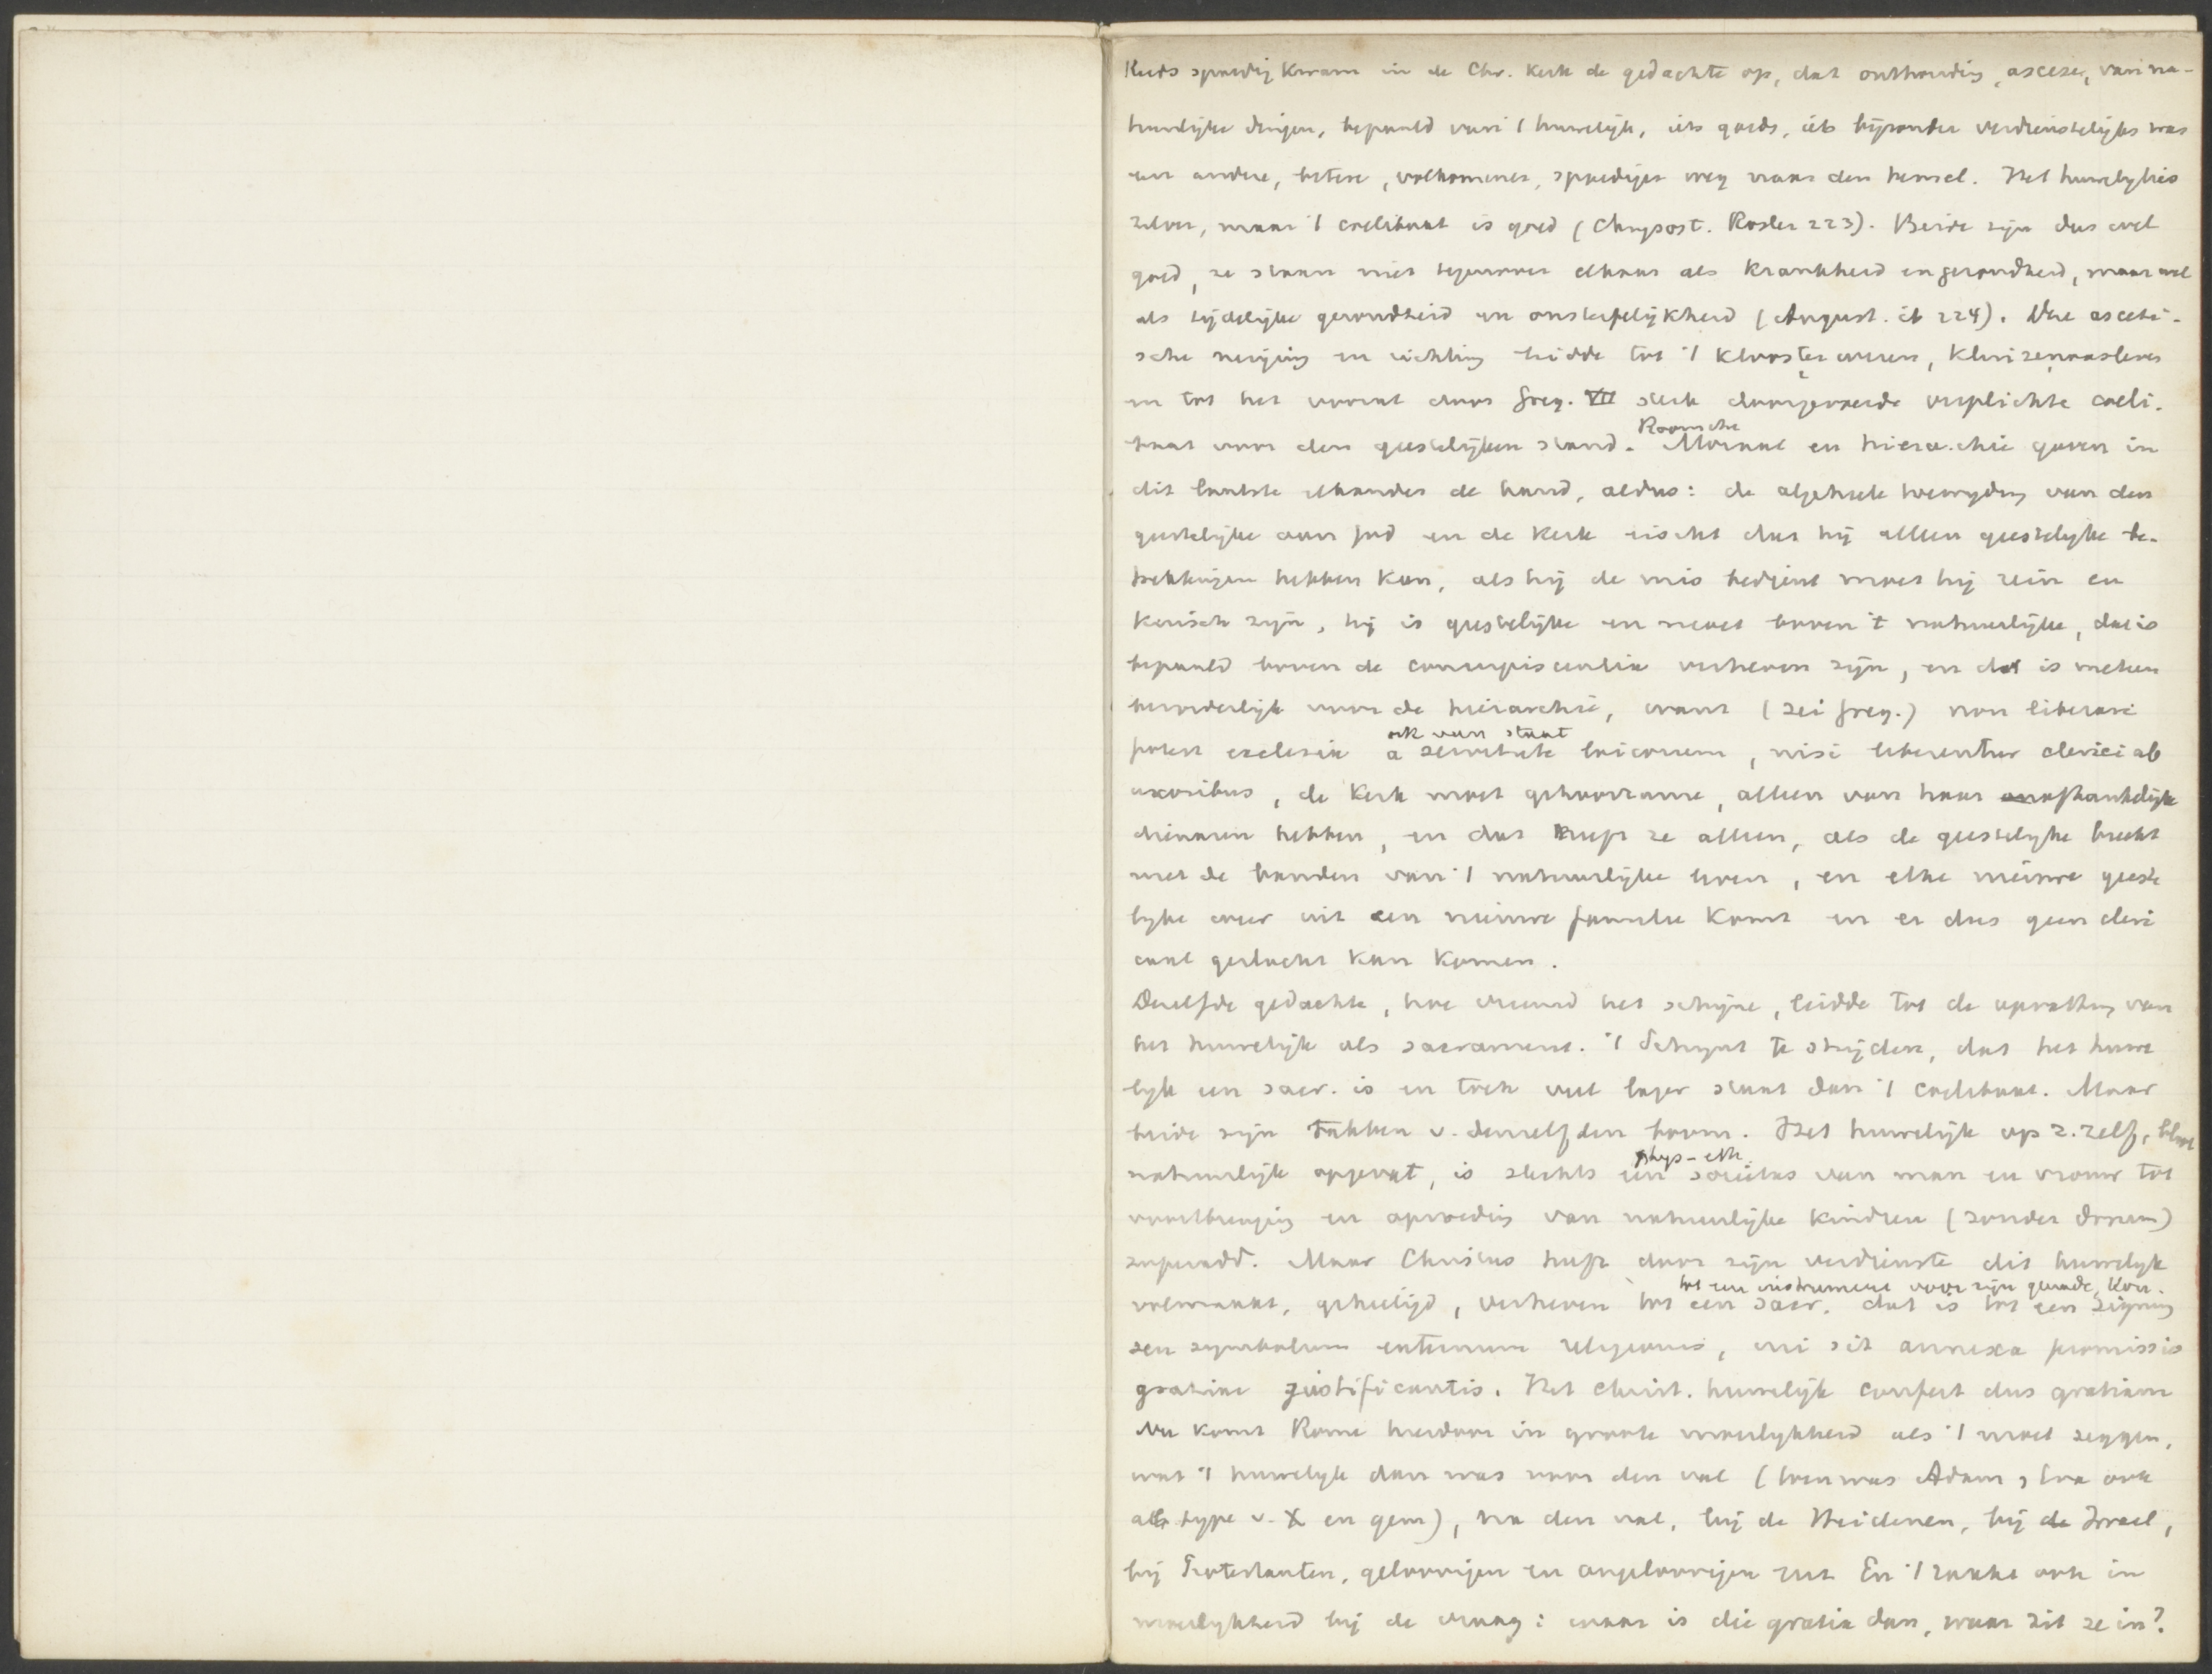 Reeds spoedig kwam in de Chr. Kerk de gedachte op, dat onthouding, ascese, van na-
tuurlijke dingen, bepaald van 't huwelijk, iets goeds, iets bijzonder verdienstelijks was
een andere, betere, volkomener, spoediger weg naar den hemel. Het huwelijk is
zilver, maar 't coelibaat is goud (Chrysost. Rosler 223). Beide zijn dus wel
goed, ze staan niet tegenover elkaar als krankheid en gezondheid, maar wel
als tijdelijke gezondheid en onsterfelijkheid (August. ib 224). Deze asceti-
sche neiging en richting leidde tot 't kloosterwezen, kluizenaarsleven
en tot het vooral door Greg. VII sterk doorgevoerde verplichte coeli-
baat voor den geestelijken stand. Roomsche Moraal en hierarchie gaven in
dit laatste elkander de hand, aldus: de algeheele toewijding van den
geestelijke aan God en de Kerk eischt dat hij alleen geestelijke be-
trekkingen hebben kan, als hij de mis bedient moet hij rein en
kuisch zijn, hij is geestelijke en moet boven 't natuurlijke, dat is
bepaald boven de concupiscentia verheven zijn, en dat is meteen
bevorderlijk voor de hierarchie, want (zei Greg.) non liberari
potest ecclesia a servitute laicorum, nisi liberentur clerici ab
ook van staat
uxoribus, de Kerk moet gehoorzame, alleen van haar afhankelijke
dienaren hebben, en dat heeft ze alleen, als de geestelijke breekt
met de banden van 't natuurlijke leven, en elke nieuwe geeste
lijke weer uit een nieuwe familie komt en er dus geen cleri
caal geslacht kan komen.
Dezelfde gedachte, hoe vreemd het schijne, leidde tot de opvatting van
het huwelijk als sacrament. 't Schijnt te strijden, dat het huwe
lijk een sacr. is en toch veel lager staat dan 't coelibaat. Maar
beide zijn takken v. denzelfden boom. Het huwelijk op z. zelf, bloot
natuurlijk opgevat, is slechts een phys-eth. societas van man en vrouw tot
voortbrenging en opvoeding van natuurlijke kinderen (zonder donum)
superadd. Maar Christus heeft door zijn verdienste dit huwelijk
volmaakt, geheiligd, verheven tot een sacr. dat is tot een signum
tot een instrument voor zijn genade,
seu symbolum externum religionis, cui sit annexa promissio
gratiae justificantis. Het christ. huwelijk confert dus gratiam
Nu komt Rome hierdoor in groote moeilijkheid als 't moet zeggen,
wat 't huwelijk dan was voor den val (toen was Adam, Eva ook
als type v. X en gem), na den val, bij de Heidenen, bij de Israel,
bij Protestanten, geloovigen en ongeloovigen En 't raakt ook in
moeilijkheid bij de vraag: waar is die gratia dan, waar zit ze in?